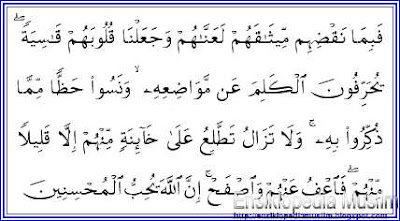 فَبِمَا نَقْضِهِم مِّيثَٰقَهُمْ لَعَنَّٰهُمْ وَجَعَلْنَا قُلُوبَهُمْ قَٰسِيَةًۖ
يُحَرِّفُونَ ٱلْكَلِمَ عَن مَّوَاضِعِهِۦۙ وَنَسُوا۟ حَظًّا مِّمَّا
ذُكِّرُوا۟ بِهِۦۚ وَلَا تَزَالُ تَطَّلِعُ عَلَىٰ خَآئِنَةٍ مِّنْهُمْ إِلَّا قَلِيلًا
مِّنْهُمْۖ فَٱعْفُ عَنْهُمْ وَٱصْفَحْۚ إِنَّ ٱللَّهَ يُحِبُّ ٱلْمُحْسِنِينَ
Ensiklopedia Muslim
http://ensiklopediamuslim.blogspot.com